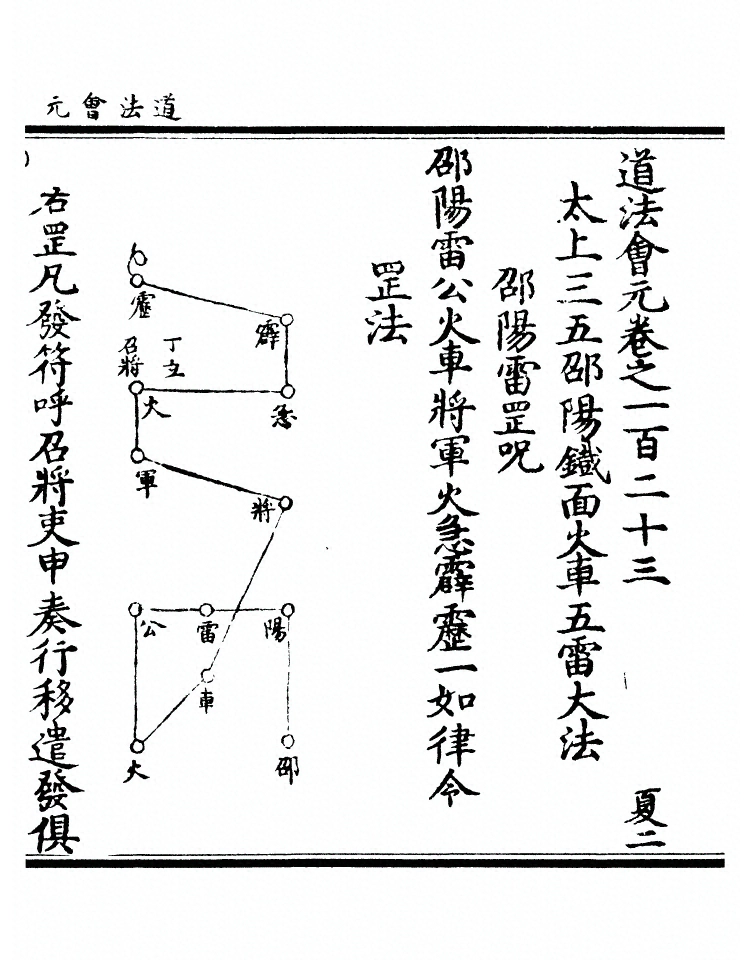 道法會元
道法會元卷之一百二十三
夏二
太上三五邵陽鐵面火車五雷大法
邵陽雷罡呪
邵陽雷公火車將軍火急霹靂一如律令
罡法
邵
陽
雷
公
火
車
將
軍
火
急
霹
靂
丁立
召將
右罡凡發符呼召將吏申奏行移遣發俱